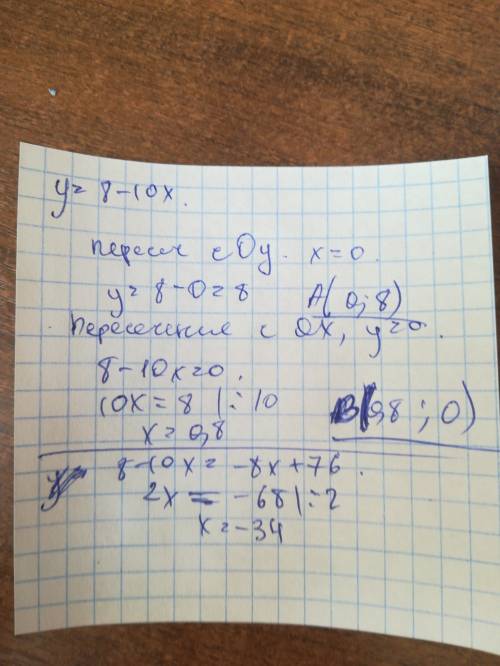 y = 8 - 10x.
пересеч с Oy. x = 0.
y = 8 - 0 = 8 A(0; 8)
Пересечения с OX, y = 0.
8 - 10x = 0.
10x = 8 | : 10
x = 0,8 B(0,8 ; 0)
8 - 10x = -8x + 76.
2x = -68 | : 2
x = -34